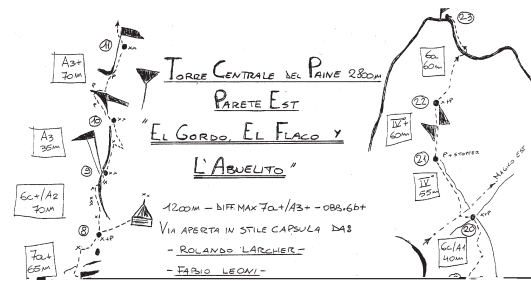 11
A3+
70m
10
A3
35m
9
6c+/A2
70m
8
7a+
65m
TORRE CENTRALE DEL PAINE 2800m
PARETE EST
"EL GORDO, EL FLACO Y
L'ABUELITO"
1200m - DIFF. MAX 7a+/A3+ - OBB. 6b+
VIA APERTA IN STILE CAPSULA DA:
- ROLANDO LARCHER -
- FABIO LEONI -
23
6a
60m
22
+P
IV+
60m
21
P+STOPPER
IV
55m
MAGICO EST
X+P
20
6c/A1
40m
X+P